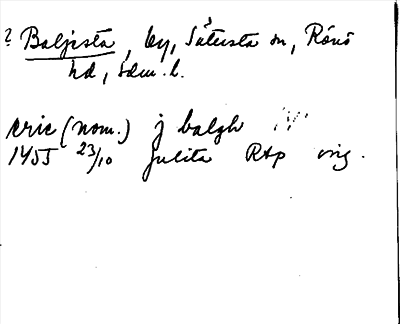 ? Baljsta, by, Sätersta sn, Rönö
hd, Sdm. l.
eric (nom.) j balgh
1455 23/10 Julita RAp orig.